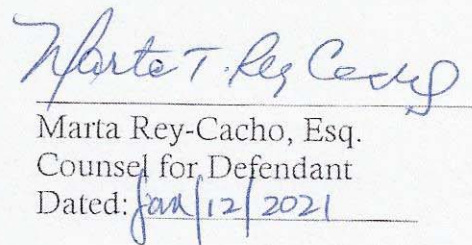 Marta T. Rey Cacho
Marta Rey-Cacho, Esq.
Counsel for Defendant
Dated: Jan/12/2021